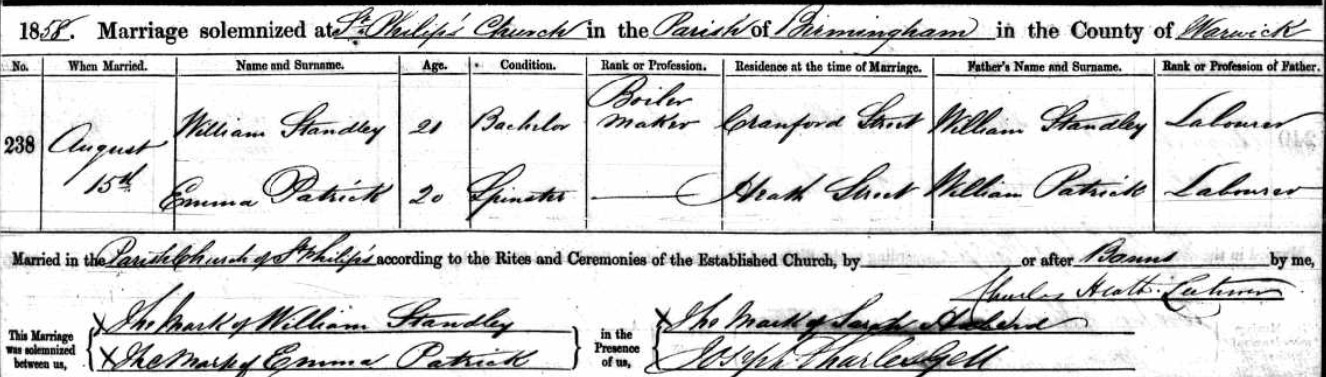 1858. Marriage solemnized at St. Philip's Church in the Parish of Birmingham in the County of Warwick
No. When Married. Name and Surname. Age. Condition. Rank or Profession. Residence at the time of Marriage. Father's Name and Surname. Rank or Profession of Father.
238 August 15th
William Standley 21 Bachelor Boiler Maker Cranford Street William Standley Labourer
Emma Patrick 20 Spinster Heath Street William Patrick Labourer
Married in the Parish Church of St Philip's according to the Rites and Ceremonies of the Established Church, by or after Banns by me,
Charles Heath
This Marriage was solemnized between us,
X The Mark of William Standley
X The Mark of Emma Patrick
in the Presence of us,
X The Mark of Sarah
Joseph Charles Gell